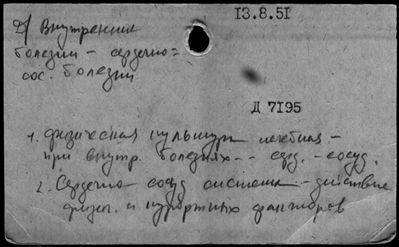 13.8.51
2/ Внутренние
болезни - сердечно=
сос. болезни
Д 7195
1. физическая культура лечебная -
при внутр. болезнях -- серд. - сосуд.
2. Сердечно сосуд система - действие
физич. и курортных факторов